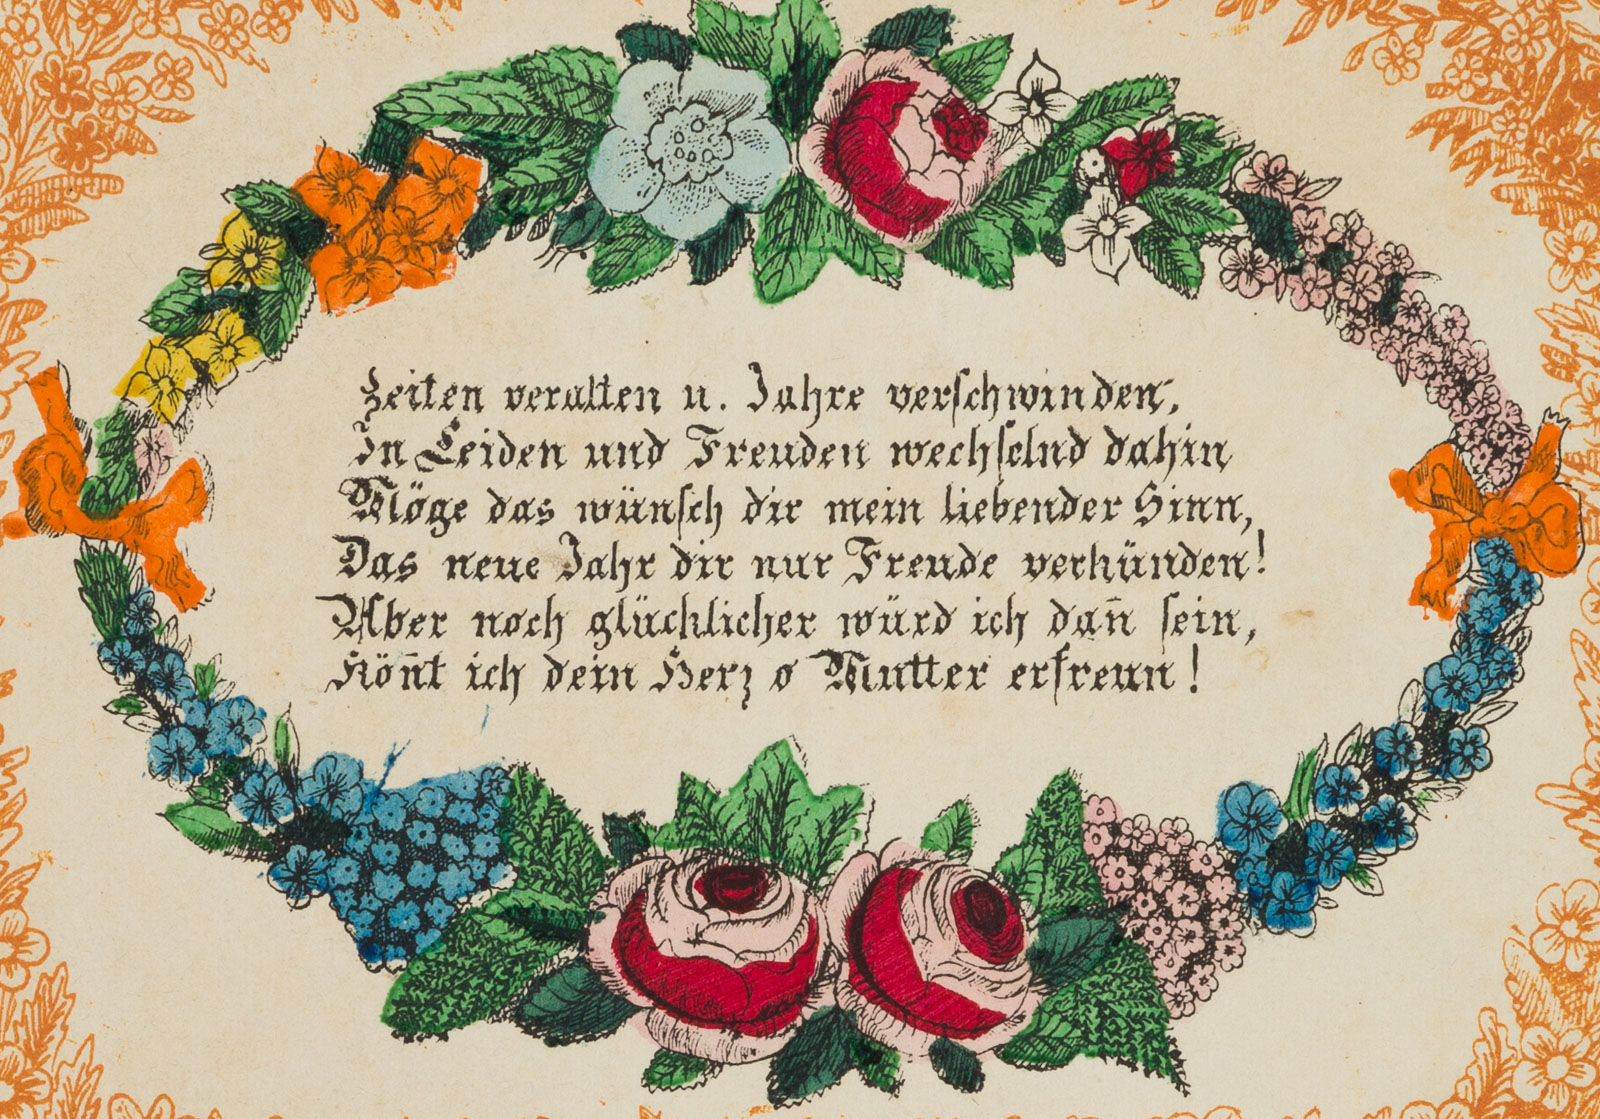 Zeiten veralten u. Jahre verschwinden,
In Leiden und Freuden wechselnd dahin
Möge das wünsch dir mein liebender Sinn,
Das neue Jahr dir nur Freude verkünden!
Aber noch glücklicher würd ich dan̄ sein,
Kön̄t ich dein Herz o Mutter erfreun!